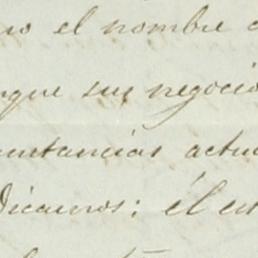 el nombre
que sus negocio
unstancias actua
dicamos: él es